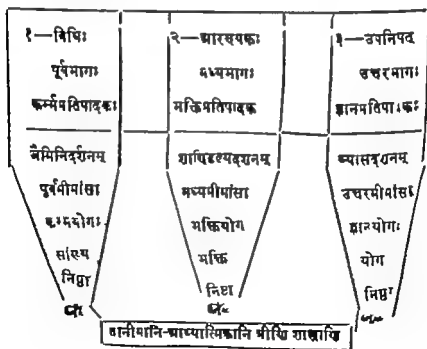 १—विधिः
पूर्वभागः
कर्म्मप्रतिपादकः
जैमिनिदर्शनम्
पूर्वमीमांसा
कर्म्मयोगः
सांख्य
निष्ठा
२—आरण्यकः
मध्यभागः
भक्तिप्रतिपादक
शाण्डिल्यदर्शनम्
मध्यमीमांसा
भक्तियोग
भक्ति
निष्ठा
३—उपनिषद्
उत्तरभागः
ज्ञानप्रतिपादकः
व्यासदर्शनम्
उत्तरमीमांसा
ज्ञानयोगः
योग
निष्ठा
तानीमानि-आध्यात्मिकानि त्रीणि शास्त्राणि